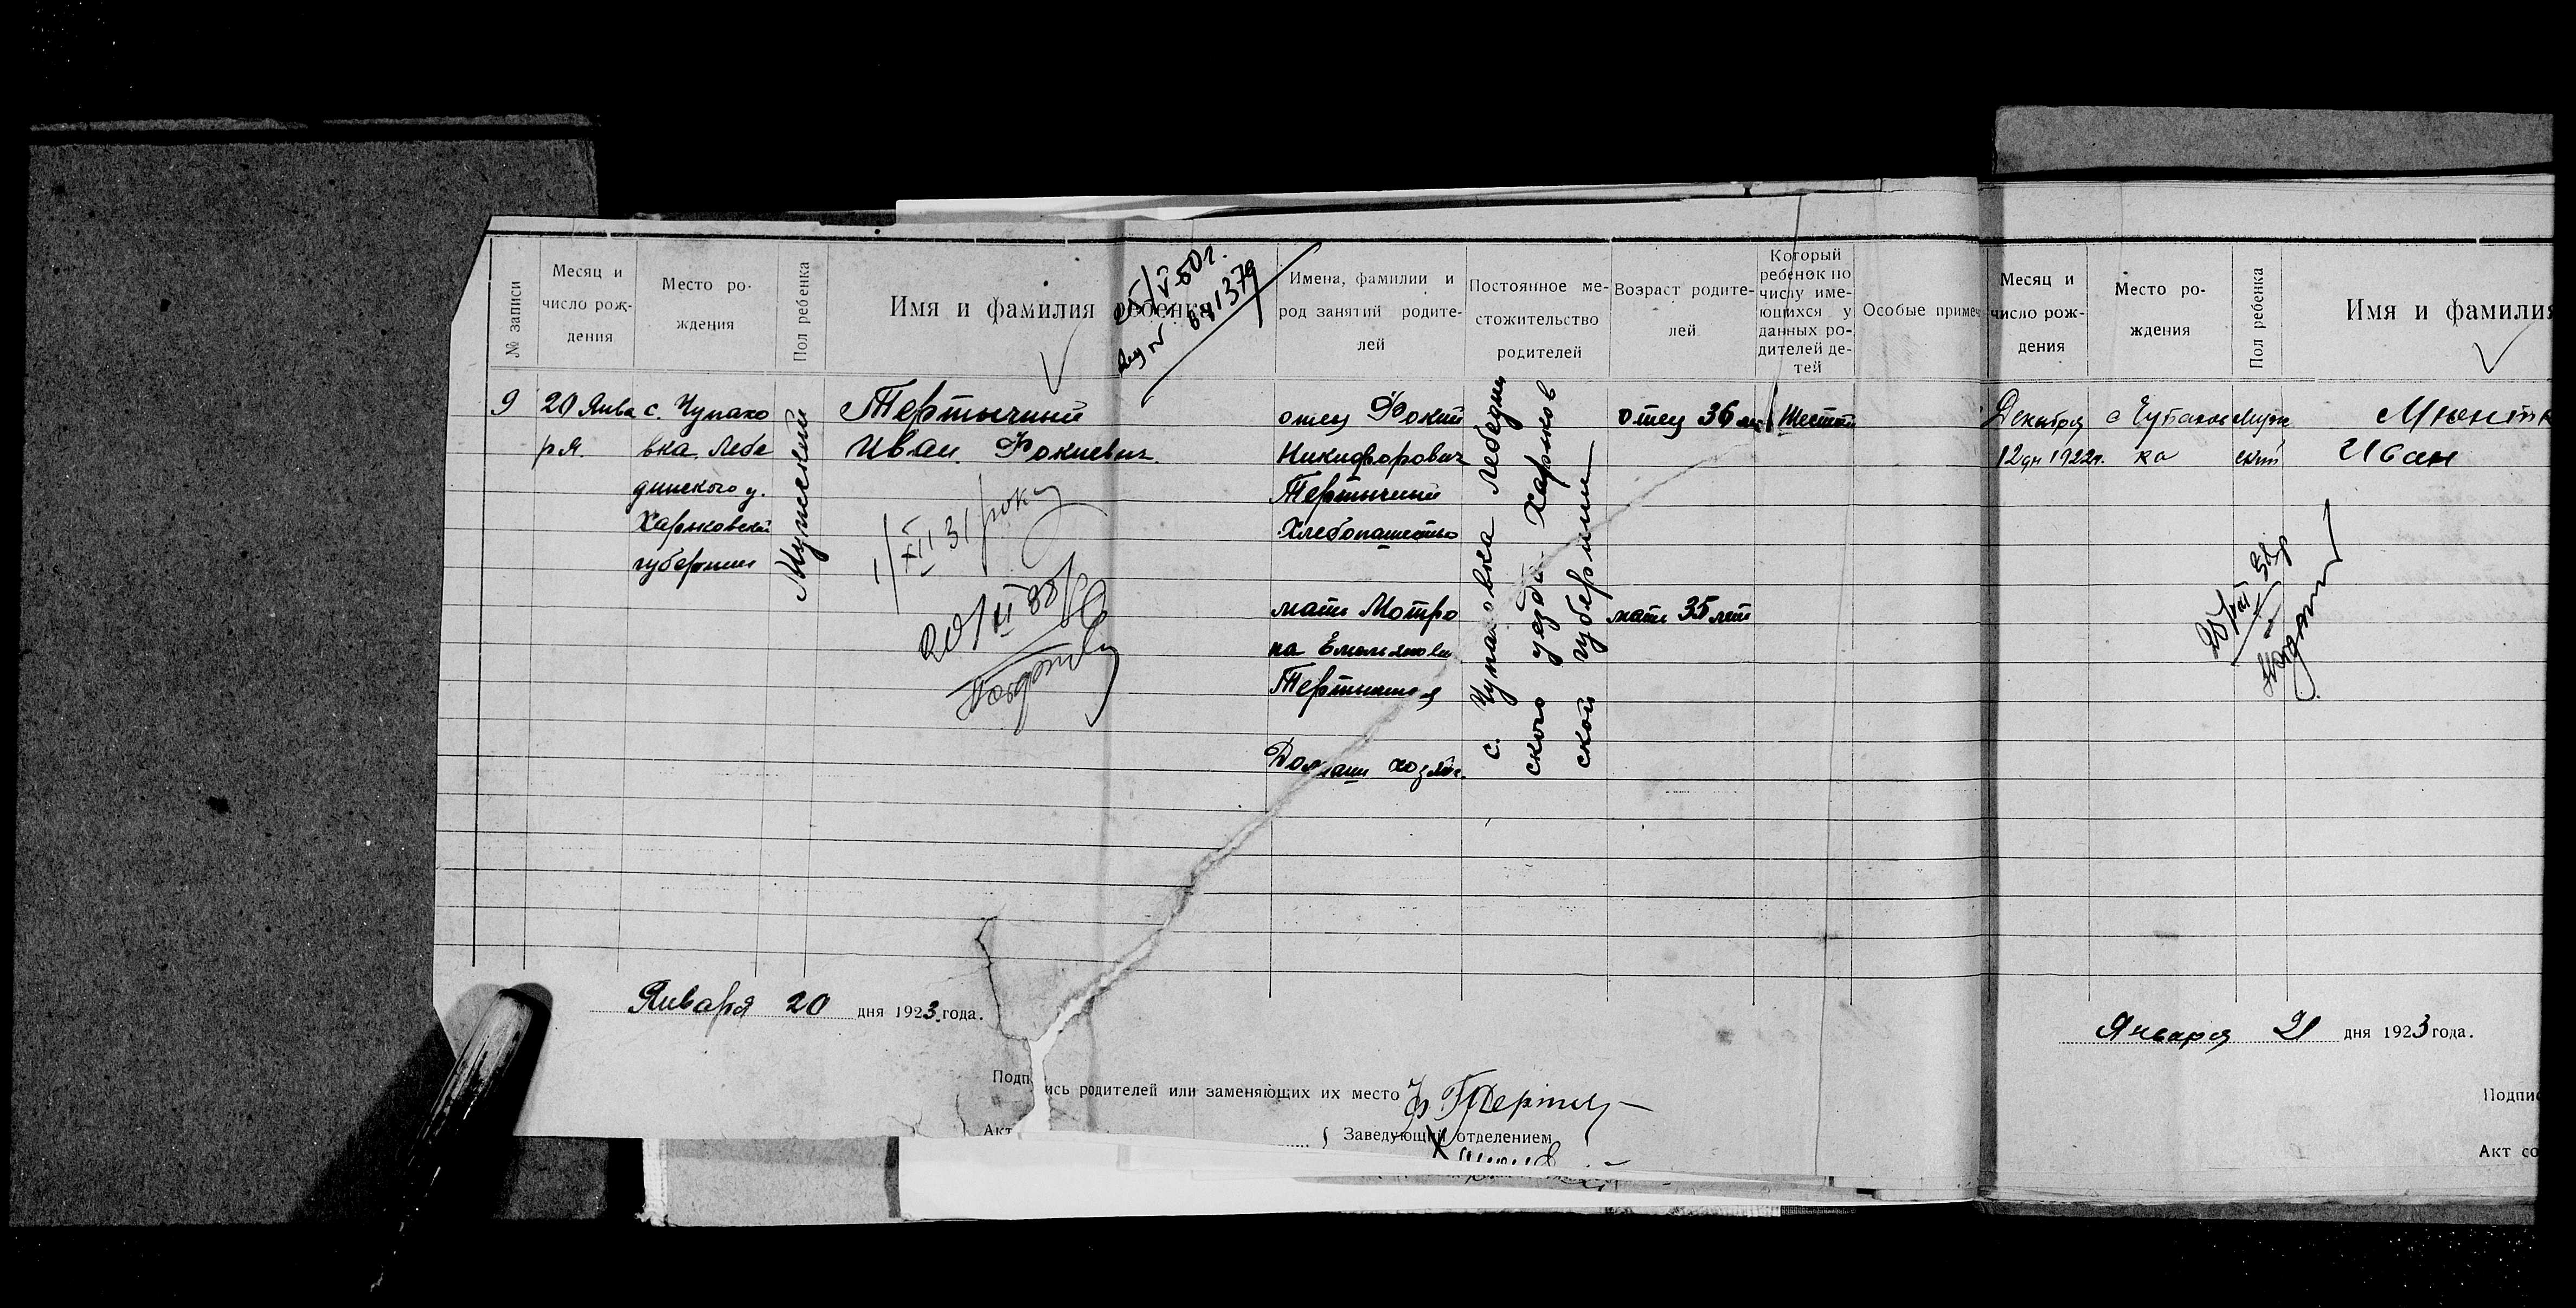 № записи
Месяц и число рождения
Место рождения
Пол ребенка
Имя и фамилия ребенка
Имена, фамилии и род занятий родителей
Постоянное местожительство родителей
Возраст родителей
Который ребенок по числу имеющихся у данных родителей детей
Особые примеч
25/V-50г.
041379
9
20 Янва
ря
с. Чупахо
вка Лебе
динского у.
Харьковской
губернии
Мужский
Тертычний
Иван Фокиевич
1/XII 31 року
20/VI 38
отец Фокий
Никифорович
Тертычний
Хлебопашество
мать Мотро
на Емельяновн
Тертычная
Домашн хозяйс.
с. Чупаховка Лебедин
ского уезда Харьков
ской губернии
отец 36 лет
мать 35 лет
Шестой
Января 20 дня 1923 года.
Подпись родителей или заменяющих их место Ф Тертыч
Акт
Заведующий отделением
Месяц и число рождения
Место рождения
Пол ребенка
Имя и фамилия
Декабря
12 дн 1922г.
с Чупахов
ка
Муж
ский
Иван
Января 21 дня 1923 года.
Подпис
Акт со